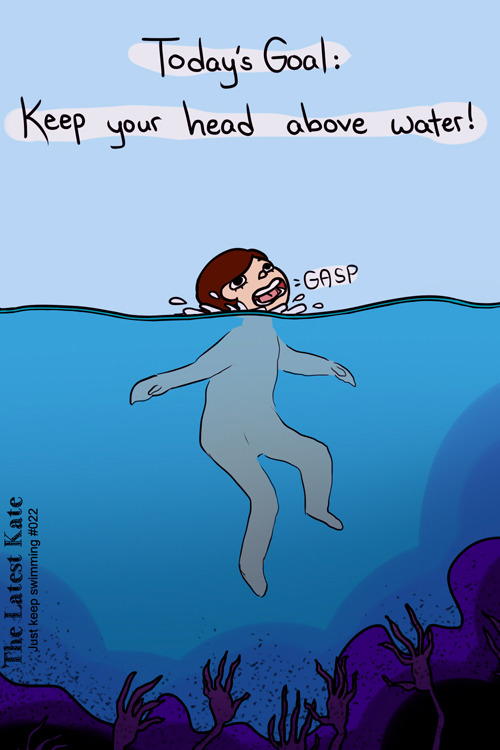 Today's Goal:
Keep your head above water!
GASP
The Latest Kate
Just keep swimming #022